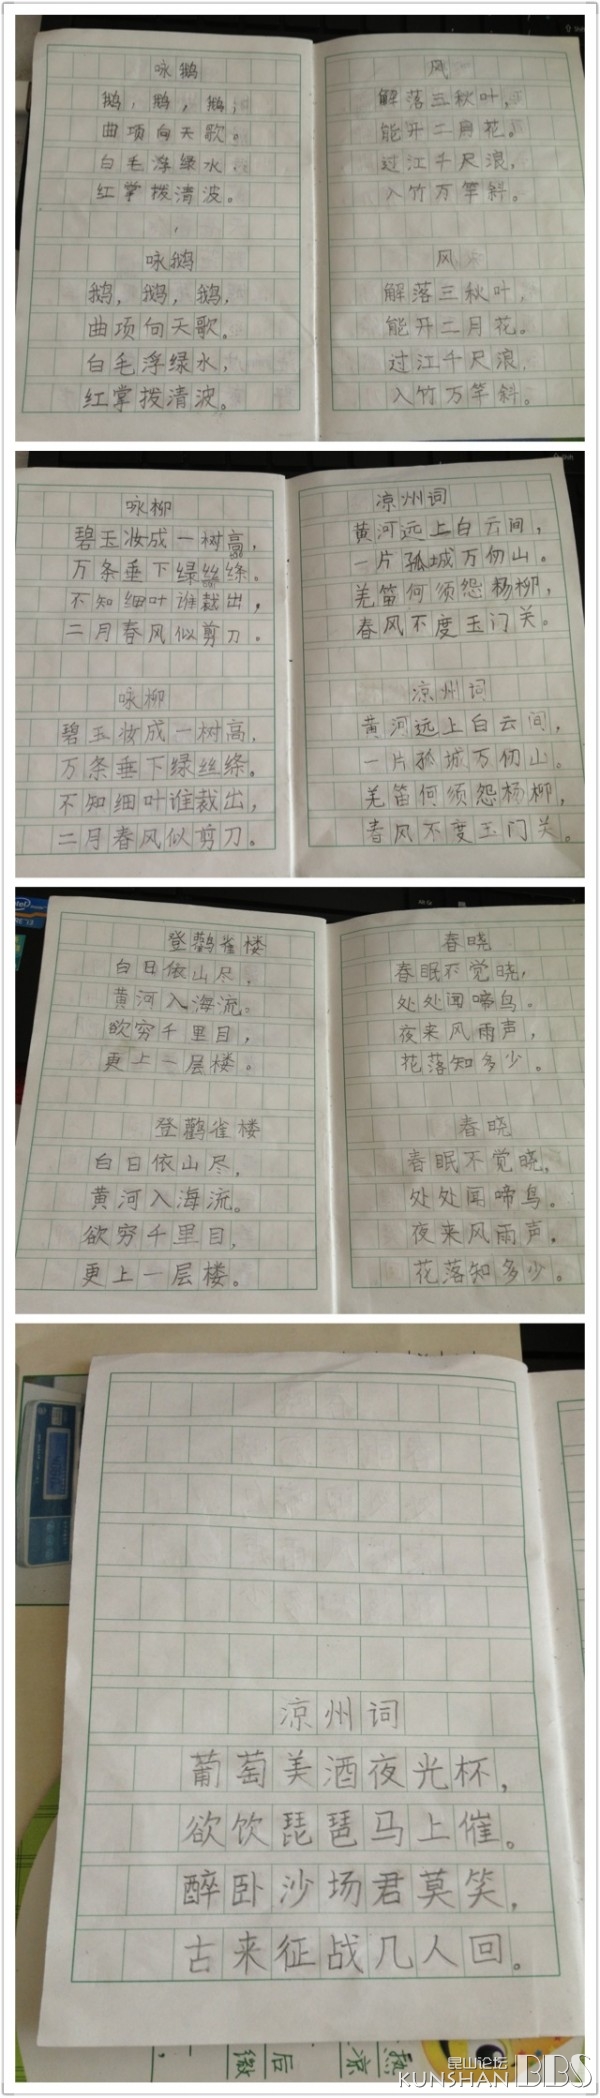 咏鹅
鹅，鹅，鹅，
曲项向天歌。
白毛浮绿水，
红掌拨清波。
咏鹅
鹅，鹅，鹅，
曲项向天歌。
白毛浮绿水，
红掌拨清波。
风
解落三秋叶，
能开二月花。
过江千尺浪，
入竹万竿斜。
风
解落三秋叶，
能开二月花。
过江千尺浪，
入竹万竿斜。
咏柳
碧玉妆成一树高，
万条垂下绿丝绦。
不知细叶谁裁出，
二月春风似剪刀。
咏柳
碧玉妆成一树高，
万条垂下绿丝绦。
不知细叶谁裁出，
二月春风似剪刀。
凉州词
黄河远上白云间，
一片孤城万仞山。
羌笛何须怨杨柳，
春风不度玉门关。
凉州词
黄河远上白云间，
一片孤城万仞山。
羌笛何须怨杨柳，
春风不度玉门关。
登鹳雀楼
白日依山尽，
黄河入海流。
欲穷千里目，
更上一层楼。
登鹳雀楼
白日依山尽，
黄河入海流。
欲穷千里目，
更上一层楼。
春晓
春眠不觉晓，
处处闻啼鸟。
夜来风雨声，
花落知多少。
春晓
春眠不觉晓，
处处闻啼鸟。
夜来风雨声，
花落知多少。
凉州词
葡萄美酒夜光杯，
欲饮琵琶马上催。
醉卧沙场君莫笑，
古来征战几人回。
热凉
后微
昆山论坛
KUNSHAN BBS